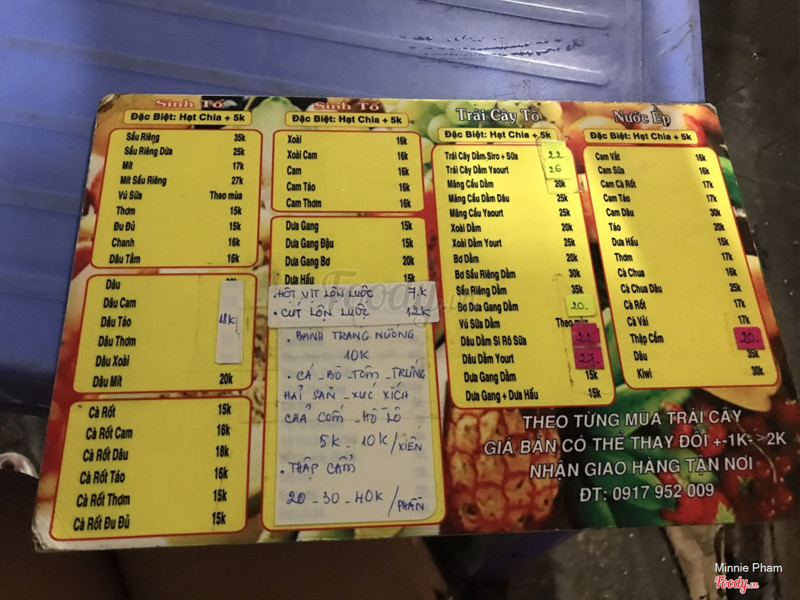 Sinh Tố
Đặc Biệt: Hạt Chia + 5k
Sầu Riêng 35k
Sầu Riêng Dừa 25k
Mít 17k
Mít Sầu Riêng 27k
Vú Sữa Theo mùa
Thơm 15k
Đu Đủ 15k
Chanh 16k
Dâu Tằm 16k
Dâu
Dâu Cam
Dâu Táo 18K
Dâu Thơm
Dâu Xoài
Dâu Mít 20k
Cà Rốt 15k
Cà Rốt Cam 16k
Cà Rốt Dâu 18k
Cà Rốt Táo 16k
Cà Rốt Thơm 15k
Cà Rốt Đu Đủ 15k
Sinh Tố
Đặc Biệt: Hạt Chia + 5k
Xoài 16k
Xoài Cam 16k
Cam 16k
Cam Táo 16k
Cam Thơm 16k
Dưa Gang 15k
Dưa Gang Đậu 15k
Dưa Gang Bơ 20k
Dưa Hấu 15k
. HỘT VỊT LỘN LUỘC 7K
. CÚT LỘN LUỘC 12K
. BÁNH TRÁNG NƯỚNG
10K
. CÁ _ BÒ _ TÔM _ TRỨNG
HẢI SẢN _ XÚC XÍCH
CHẢ CỐM _ HỒ LÔ
5K _ 10K / XIÊN
. THẬP CẨM
20 _ 30 _ 40K / PHẦN
Trái Cây Tô
Đặc Biệt: Hạt Chia + 5k
Trái Cây Dằm Siro + Sữa 22
Trái Cây Dằm Yaourt 26
Mãng Cầu Dằm 20k
Mãng Cầu Dằm Dâu 25k
Mãng Cầu Yaourt 25k
Xoài Dằm 20k
Xoài Dằm Yourt 25k
Bơ Dằm 25k
Bơ Sầu Riêng Dằm 30k
Sầu Riêng Dằm 35k
Bơ Dưa Gang Dằm 20.
Vú Sữa Dằm Theo mùa
Dâu Dằm Si Rô Sữa 22
Dâu Dằm Yourt 27.
Dưa Gang Dằm 15k
Dưa Gang + Dưa Hấu 15k
Nước Ép
Đặc Biệt: Hạt Chia + 5k
Cam Vắt 16k
Cam Sữa 16k
Cam Cà Rốt 17k
Cam Táo 17k
Cam Dâu 30k
Táo 20k
Dưa Hấu 15k
Thơm 17k
Cà Chua 16k
Cà Chua Dâu 25k
Cà Rốt 17k
Cà Vải 17k
Thập Cẩm 20.
Dâu 35k
Kiwi 30k
THEO TỪNG MÙA TRÁI CÂY
GIÁ BÁN CÓ THỂ THAY ĐỔI +-1K->2K
NHẬN GIAO HÀNG TẬN NƠI
ĐT: 0917 952 009
Foody.vn
Minnie Pham
Foody.vn